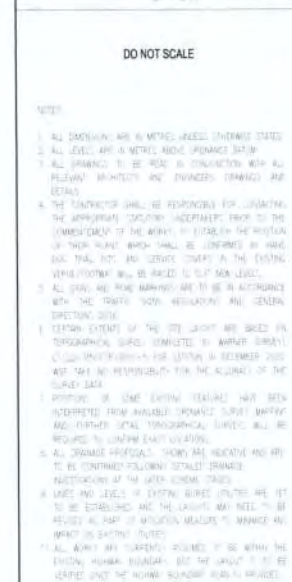 DO NOT SCALE
NOTES
1. ALL DIMENSIONS ARE IN METRES UNLESS OTHERWISE STATED
2. ALL LEVELS ARE IN METRES ABOVE ORDNANCE DATUM
3. ALL DRAWINGS TO BE READ IN CONJUNCTION WITH ALL
RELEVANT ARCHITECTS AND ENGINEERS DRAWINGS AND
DETAILS
4. THE CONTRACTOR SHALL BE RESPONSIBLE FOR CONTACTING
THE APPROPRIATE STATUTORY UNDERTAKERS PRIOR TO THE
COMMENCEMENT OF THE WORKS TO ESTABLISH THE POSITION
OF THEIR PLANT WHICH SHALL BE CONFIRMED BY HAND
DUG TRIAL PITS AND SERVICE COVERS IN THE EXISTING
VERGE/FOOTWAY WILL BE RAISED TO SUIT NEW LEVELS.
5. ALL SIGNS AND ROAD MARKINGS ARE TO BE IN ACCORDANCE
WITH THE TRAFFIC SIGNS REGULATIONS AND GENERAL
DIRECTIONS 2016
6. CERTAIN EXTENTS OF THE SITE LAYOUT ARE BASED ON
TOPOGRAPHICAL SURVEY COMPLETED BY WARNER SURVEYS
FOR IN DECEMBER
WSP TAKE NO RESPONSIBILITY FOR THE ACCURACY OF THE
SURVEY DATA
7. POSITIONS OF SOME EXISTING FEATURES HAVE BEEN
INTERPRETED FROM AVAILABLE ORDNANCE SURVEY MAPPING
AND FURTHER DETAIL TOPOGRAPHICAL SURVEYS WILL BE
REQUIRED TO CONFIRM EXACT LOCATIONS.
8. ALL DRAINAGE PROPOSALS SHOWN ARE INDICATIVE AND ARE
TO BE CONFIRMED FOLLOWING DETAILED DRAINAGE
INVESTIGATIONS AT THE LATER SCHEME STAGES.
LINES AND LEVELS OF EXISTING BURIED UTILITIES ARE YET
TO BE ESTABLISHED AND THE LAYOUTS MAY NEED TO BE
REVISED AS PART OF MITIGATION MEASURE TO MINIMISE ANY
IMPACT ON EXISTING UTILITIES
ALL WORKS ARE CURRENTLY ASSUMED TO BE WITHIN THE
EXISTING HIGHWAY BOUNDARY, BUT THE LAYOUT IS TO BE
VERIFIED ONCE THE HIGHWAY BOUNDARY PLAN IS PROVIDED.